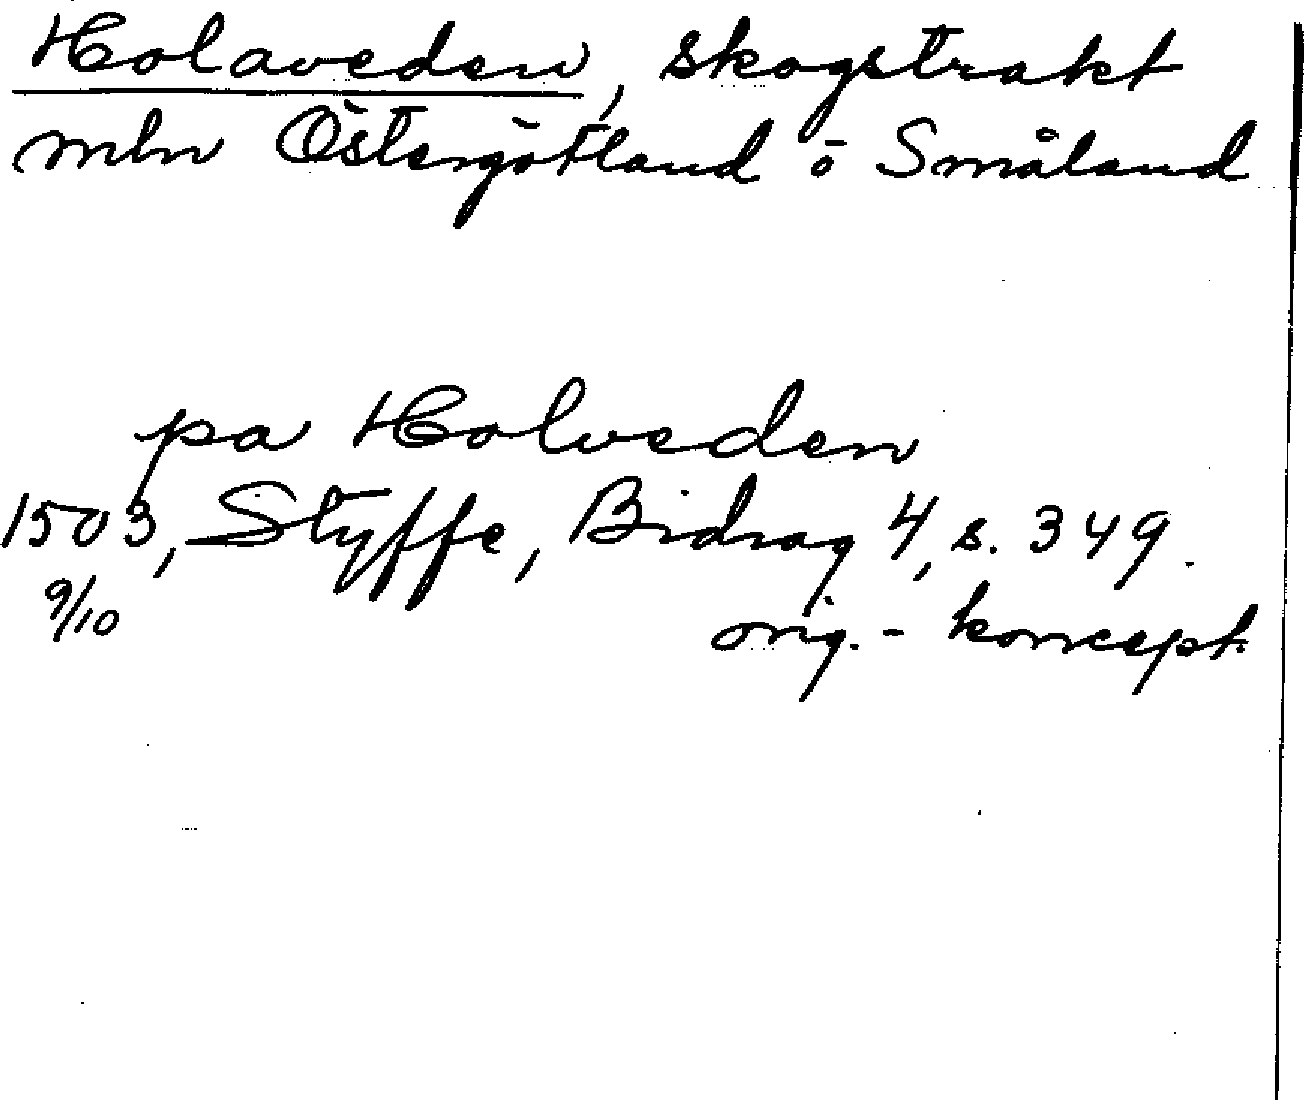 Holaveden, skogstrakt
mln Östergötland o Småland
pa Holveden
1503, Styffe, Bidrag 4, s. 349.
9/10
orig. - koncept.